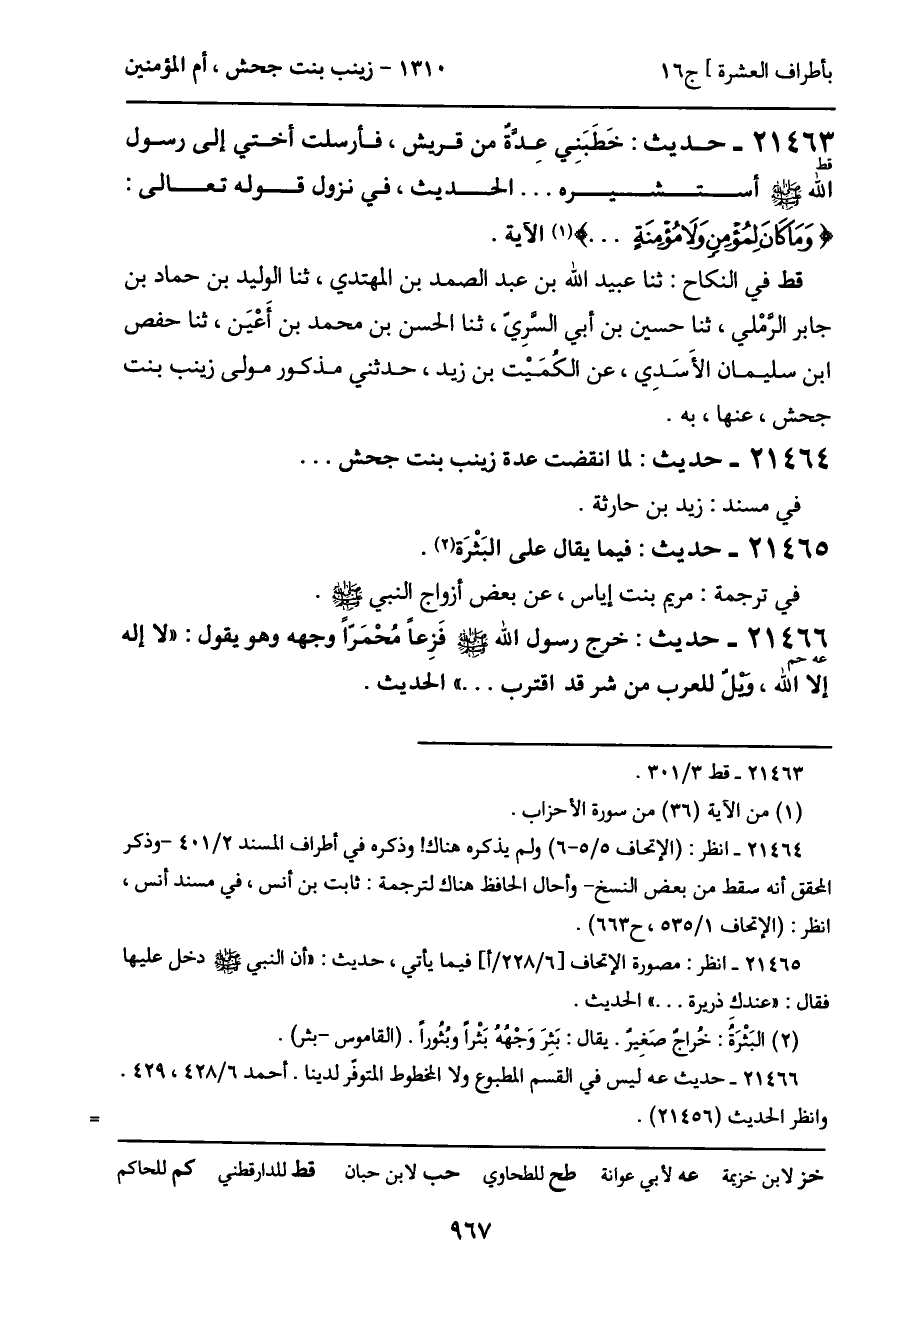 بأطراف العشرة ] ج١٦ ١٣١٠ - زينب بنت جحش ، أم المؤمنين
٢١٤٦٣ ـ حديث : خَطَبَني عِدَّةٌ من قريش ، فأرسلت أختي إلى رسول
قط
الله ﷺ أستشيره ... الحديث ، في نزول قوله تعالى :
﴿ وَمَا كَانَ لِمُؤْمِنٍ وَلَا مُؤْمِنَةٍ ...﴾(١) الآية .
قط في النكاح : ثنا عبيد الله بن عبد الصمد بن المهتدي ، ثنا الوليد بن حماد بن
جابر الرَّمْلي ، ثنا حسين بن أبي السَّرِيّ ، ثنا الحسن بن محمد بن أَعْيَن ، ثنا حفص
ابن سليمان الأَسَدِي ، عن الكُمَيْت بن زيد ، حدثني مذكور مولى زينب بنت
جحش ، عنها ، به .
٢١٤٦٤ ـ حديث : لما انقضت عدة زينب بنت جحش ...
في مسند : زيد بن حارثة .
٢١٤٦٥ ـ حديث : فيما يقال على البَثْرَة(٢) .
في ترجمة : مريم بنت إياس ، عن بعض أزواج النبي ﷺ .
٢١٤٦٦ ـ حديث : خرج رسول الله ﷺ فَزِعاً مُحْمَرّاً وجهه وهو يقول : «لا إله
عه حم
إلا الله ، وَيْلٌ للعرب من شر قد اقترب ...» الحديث .
٢١٤٦٣ ـ قط ٣٠١/٣ .
(١) من الآية (٣٦) من سورة الأحزاب .
٢١٤٦٤ ـ انظر : (الإتحاف ٥/٥-٦) ولم يذكره هناك! وذكره في أطراف المسند ٤٠١/٢ -وذكر
المحقق أنه سقط من بعض النسخ- وأحال الحافظ هناك لترجمة : ثابت بن أنس ، في مسند أنس ،
انظر : (الإتحاف ٥٣٥/١ ، ح٦٦٣) .
٢١٤٦٥ ـ انظر : مصورة الإتحاف [٢٢٨/٦/أ] فيما يأتي ، حديث : «أن النبي ﷺ دخل عليها
فقال : «عندك ذريرة ...» الحديث .
(٢) البَثْرَةُ : خُراجٌ صَغِيرٌ . يقال : بَثِرَ وَجْهُهُ بَثْراً وبُثُوراً . (القاموس -بثر) .
٢١٤٦٦ ـ حديث عه ليس في القسم المطبوع ولا المخطوط المتوفّر لدينا . أحمد ٤٢٨/٦ ، ٤٢٩ .
وانظر الحديث (٢١٤٥٦) . =
خز لابن خزيمة عه لأبي عوانة طح للطحاوي حب لابن حبان قط للدارقطني كم للحاكم
٩٦٧